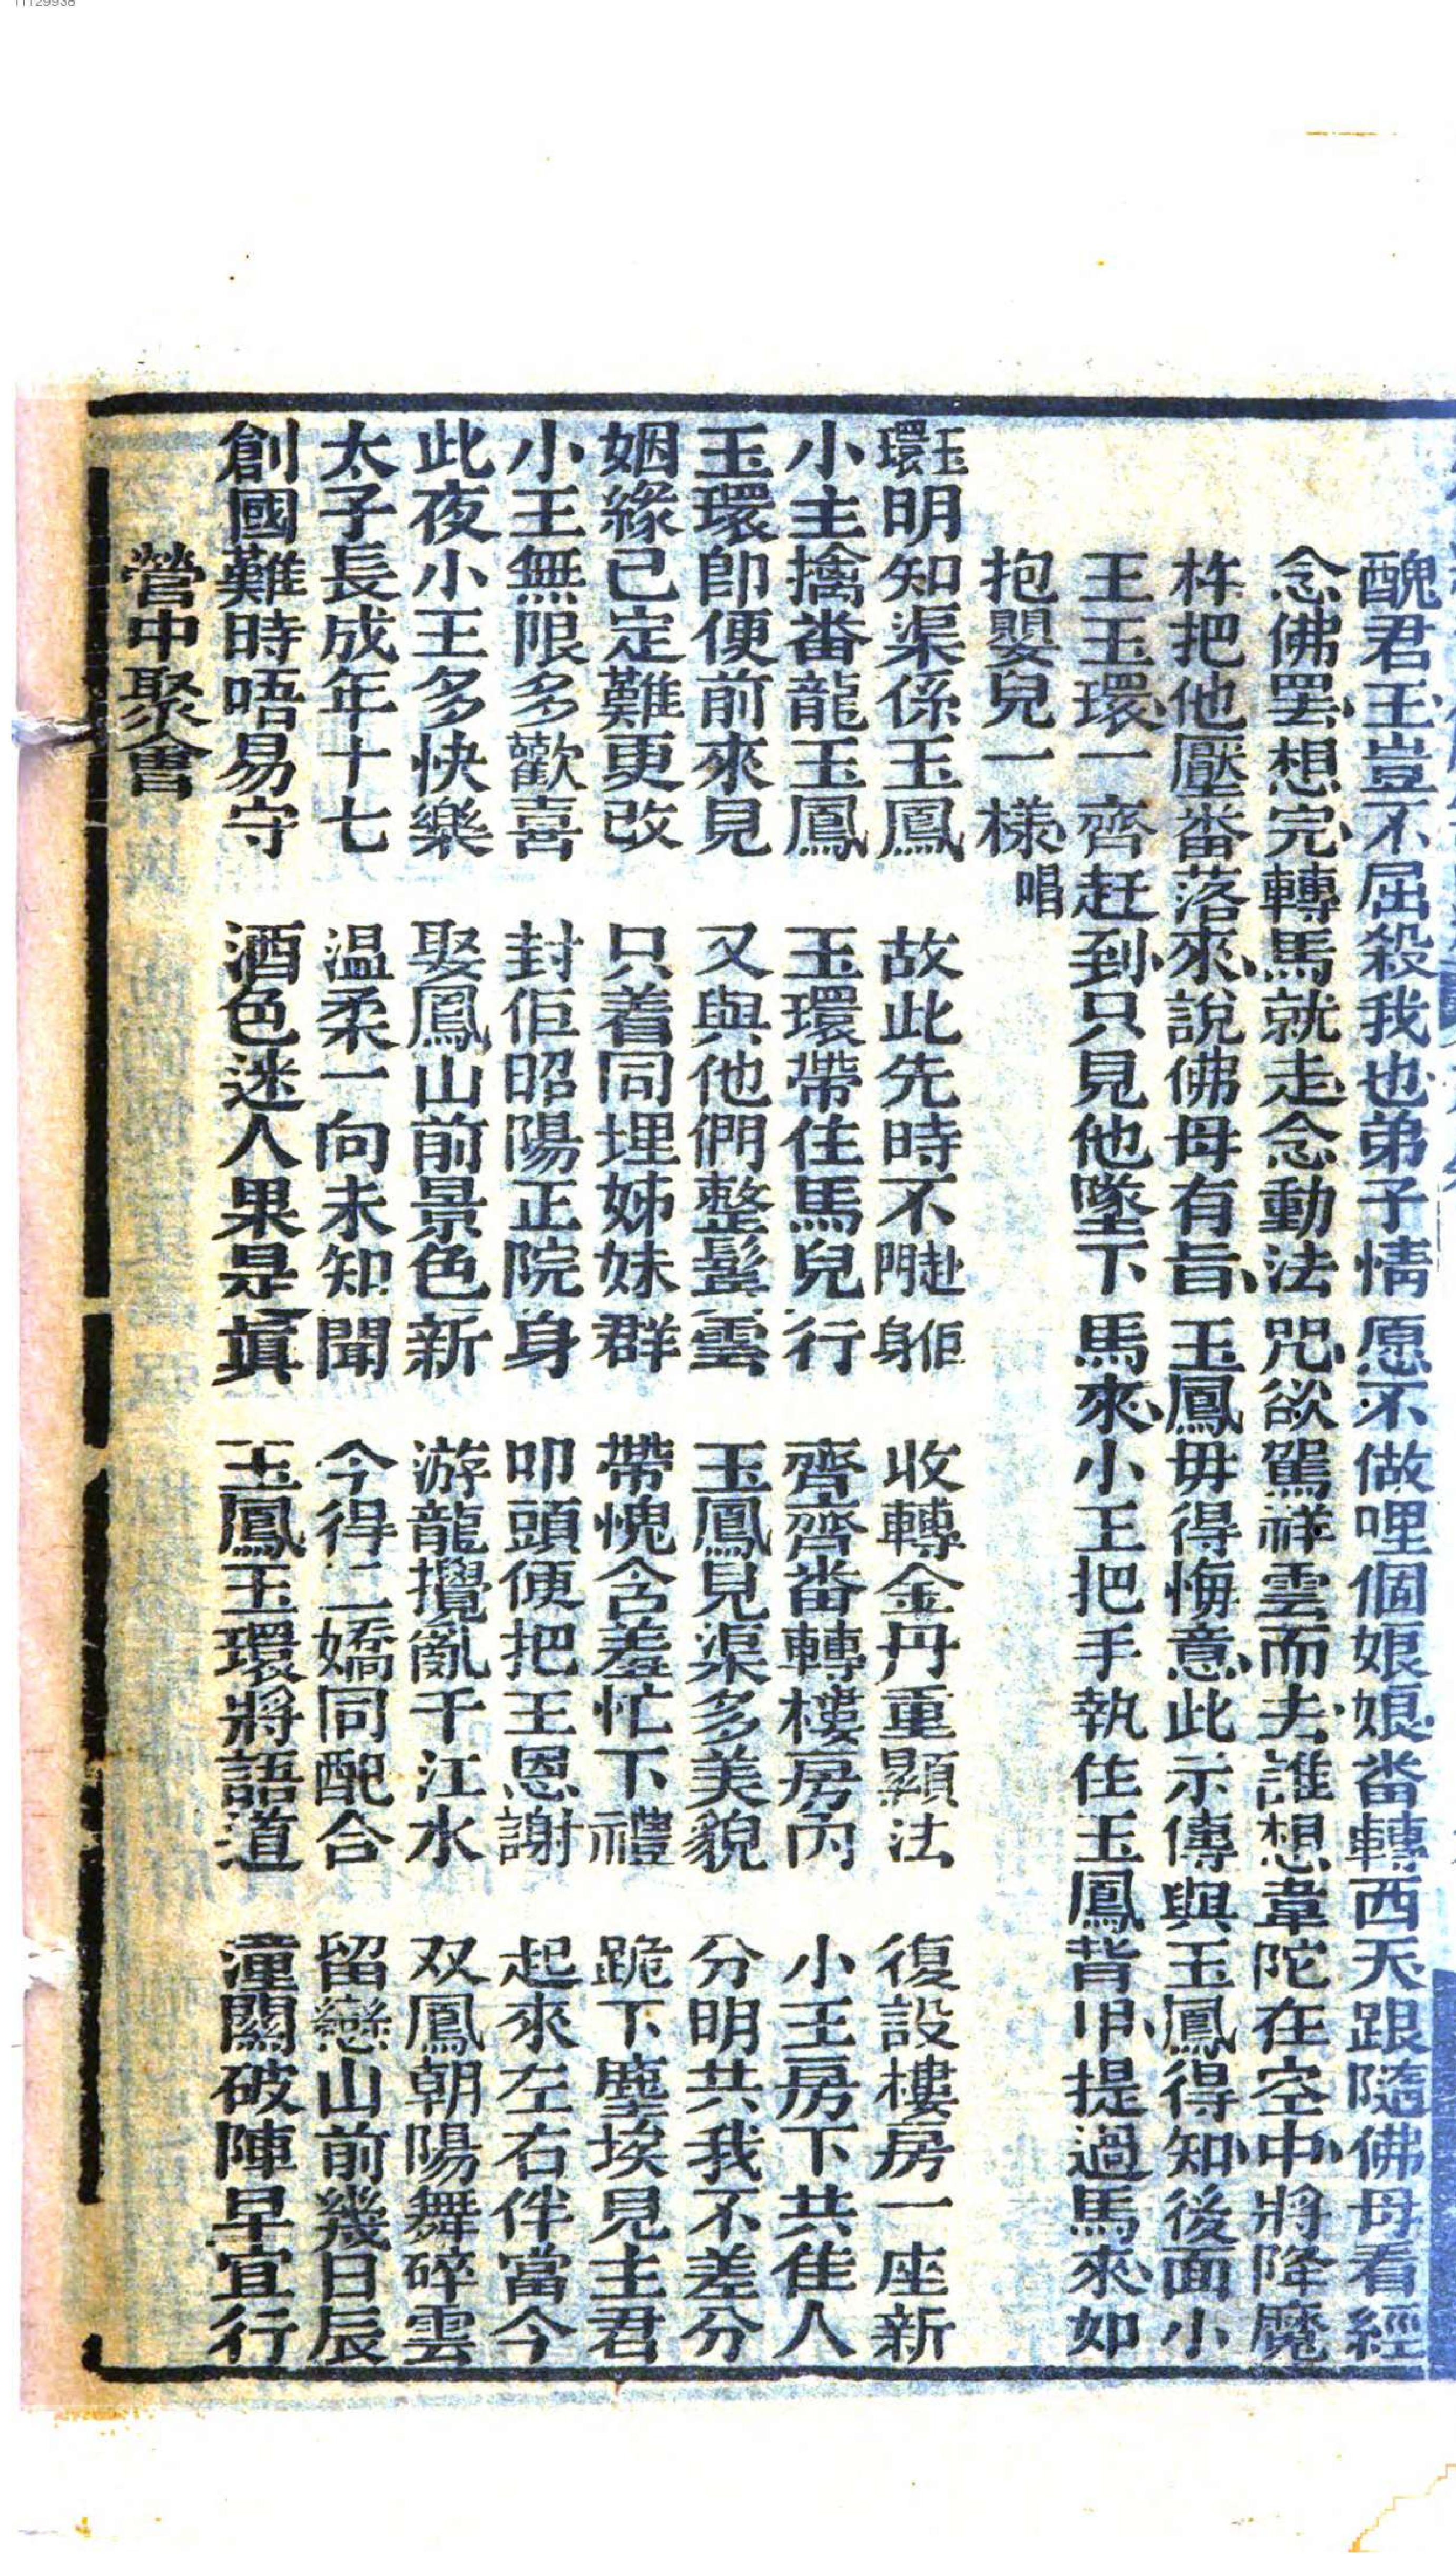 醜君王豈不屈殺我也弟子情愿不做哩個娘娘畨轉西天跟隨佛母看經
念佛罢想完轉馬就走念動法咒欲駕祥雲而去誰想韋陀在空中將降魔
杵把他壓畨落來說佛母有旨玉鳳毋得悔意此示傳與玉鳳得知後面小
王玉環一齊赶到只見他墜下馬來小王把手執住玉鳳背甲提過馬來如
抱嬰兒一樣唱
玉環明知渠係玉鳳 故此先時不赴鬥佢身 收轉金丹重顯法 復設樓房一座新
小主擒畨龍玉鳳 玉環帶住馬兒行 齊齊畨轉樓房內 小王房下共佳人
玉環即便前來見 又與他們整鬓雲 玉鳳見渠多美貌 分明共我不差分
姻緣已定難更改 只着同埋姊妹群 帶愧含羞忙下禮 跪下塵埃見主君
小王無限多歡喜 封佢昭陽正院身 叩頭便把王恩謝 起來左右伴當今
此夜小王多快樂 娶鳳山前景色新 游龍攪亂千江水 双鳳朝陽舞碎雲
太子長成年十七 温柔一向未知聞 今得二嬌同配合 留戀山前幾日辰
創國難時唔易守 酒色迷人果是真 玉鳳玉環將語道 潼關破陣早宜行
營中聚會